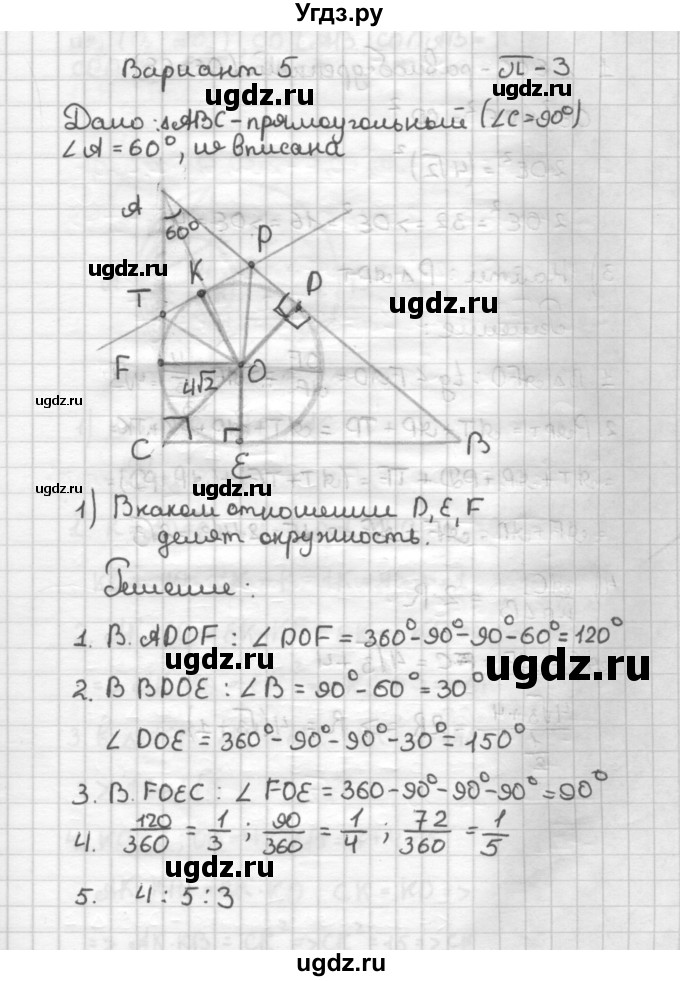 Угдз.ру
Вариант 5 П-3
ugdz.ru
Дано: △ABC - прямоугольный (∠C=90°)
∠A = 60°, вписана
A
60°
P
ugdz.ru
K
D
ugdz.ru
T
F
O
4√2
ugdz.ru
C
E
B
ugdz.ru
ugdz.ru
1) В каком отношении D, E, F
делят окружность.
ugdz.ru
Решение:
1. В. ADOF: ∠DOF = 360°-90°-90°-60°=120°
ugdz.ru
ugdz.ru
2. В BDOE: ∠B = 90°-60°=30°
∠DOE = 360°-90°-90°-30°=150°
ugdz.ru
3. В. FOEC: ∠FOE = 360-90°-90°-90°=90°
4. 120/360 = 1/3; 90/360 = 1/4; 72/360 = 1/5
ugdz.ru
5. 4:5:3
ugdz.ru